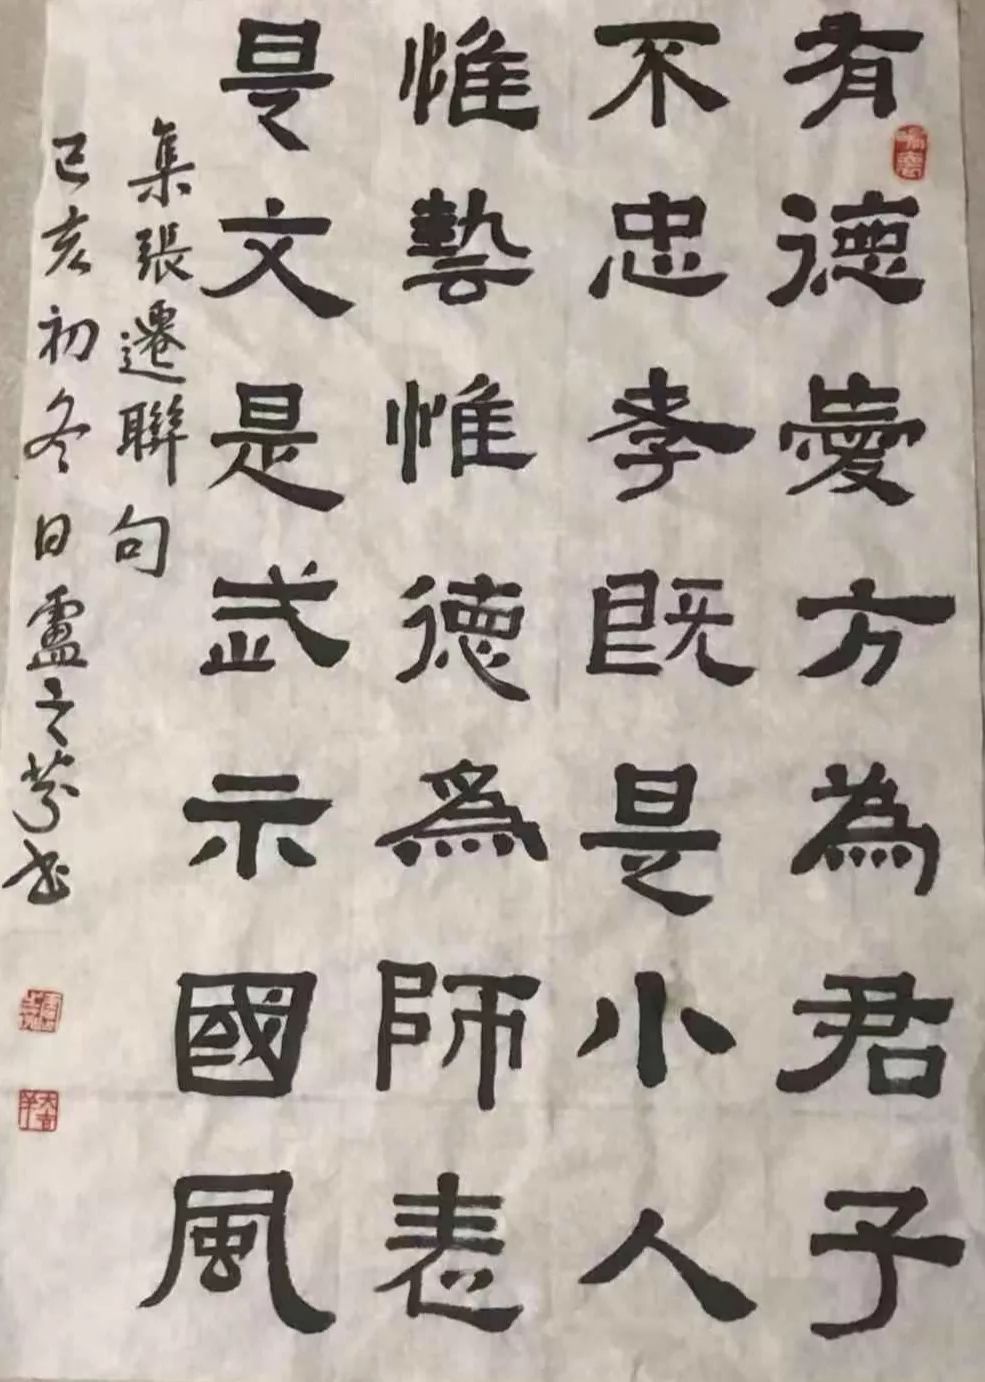 有德愛方為君子
不忠孝既是小人
惟藝惟德為師表
是文是武示國風
集張遷聯句
己亥初冬日盧之芬书
大吉羊